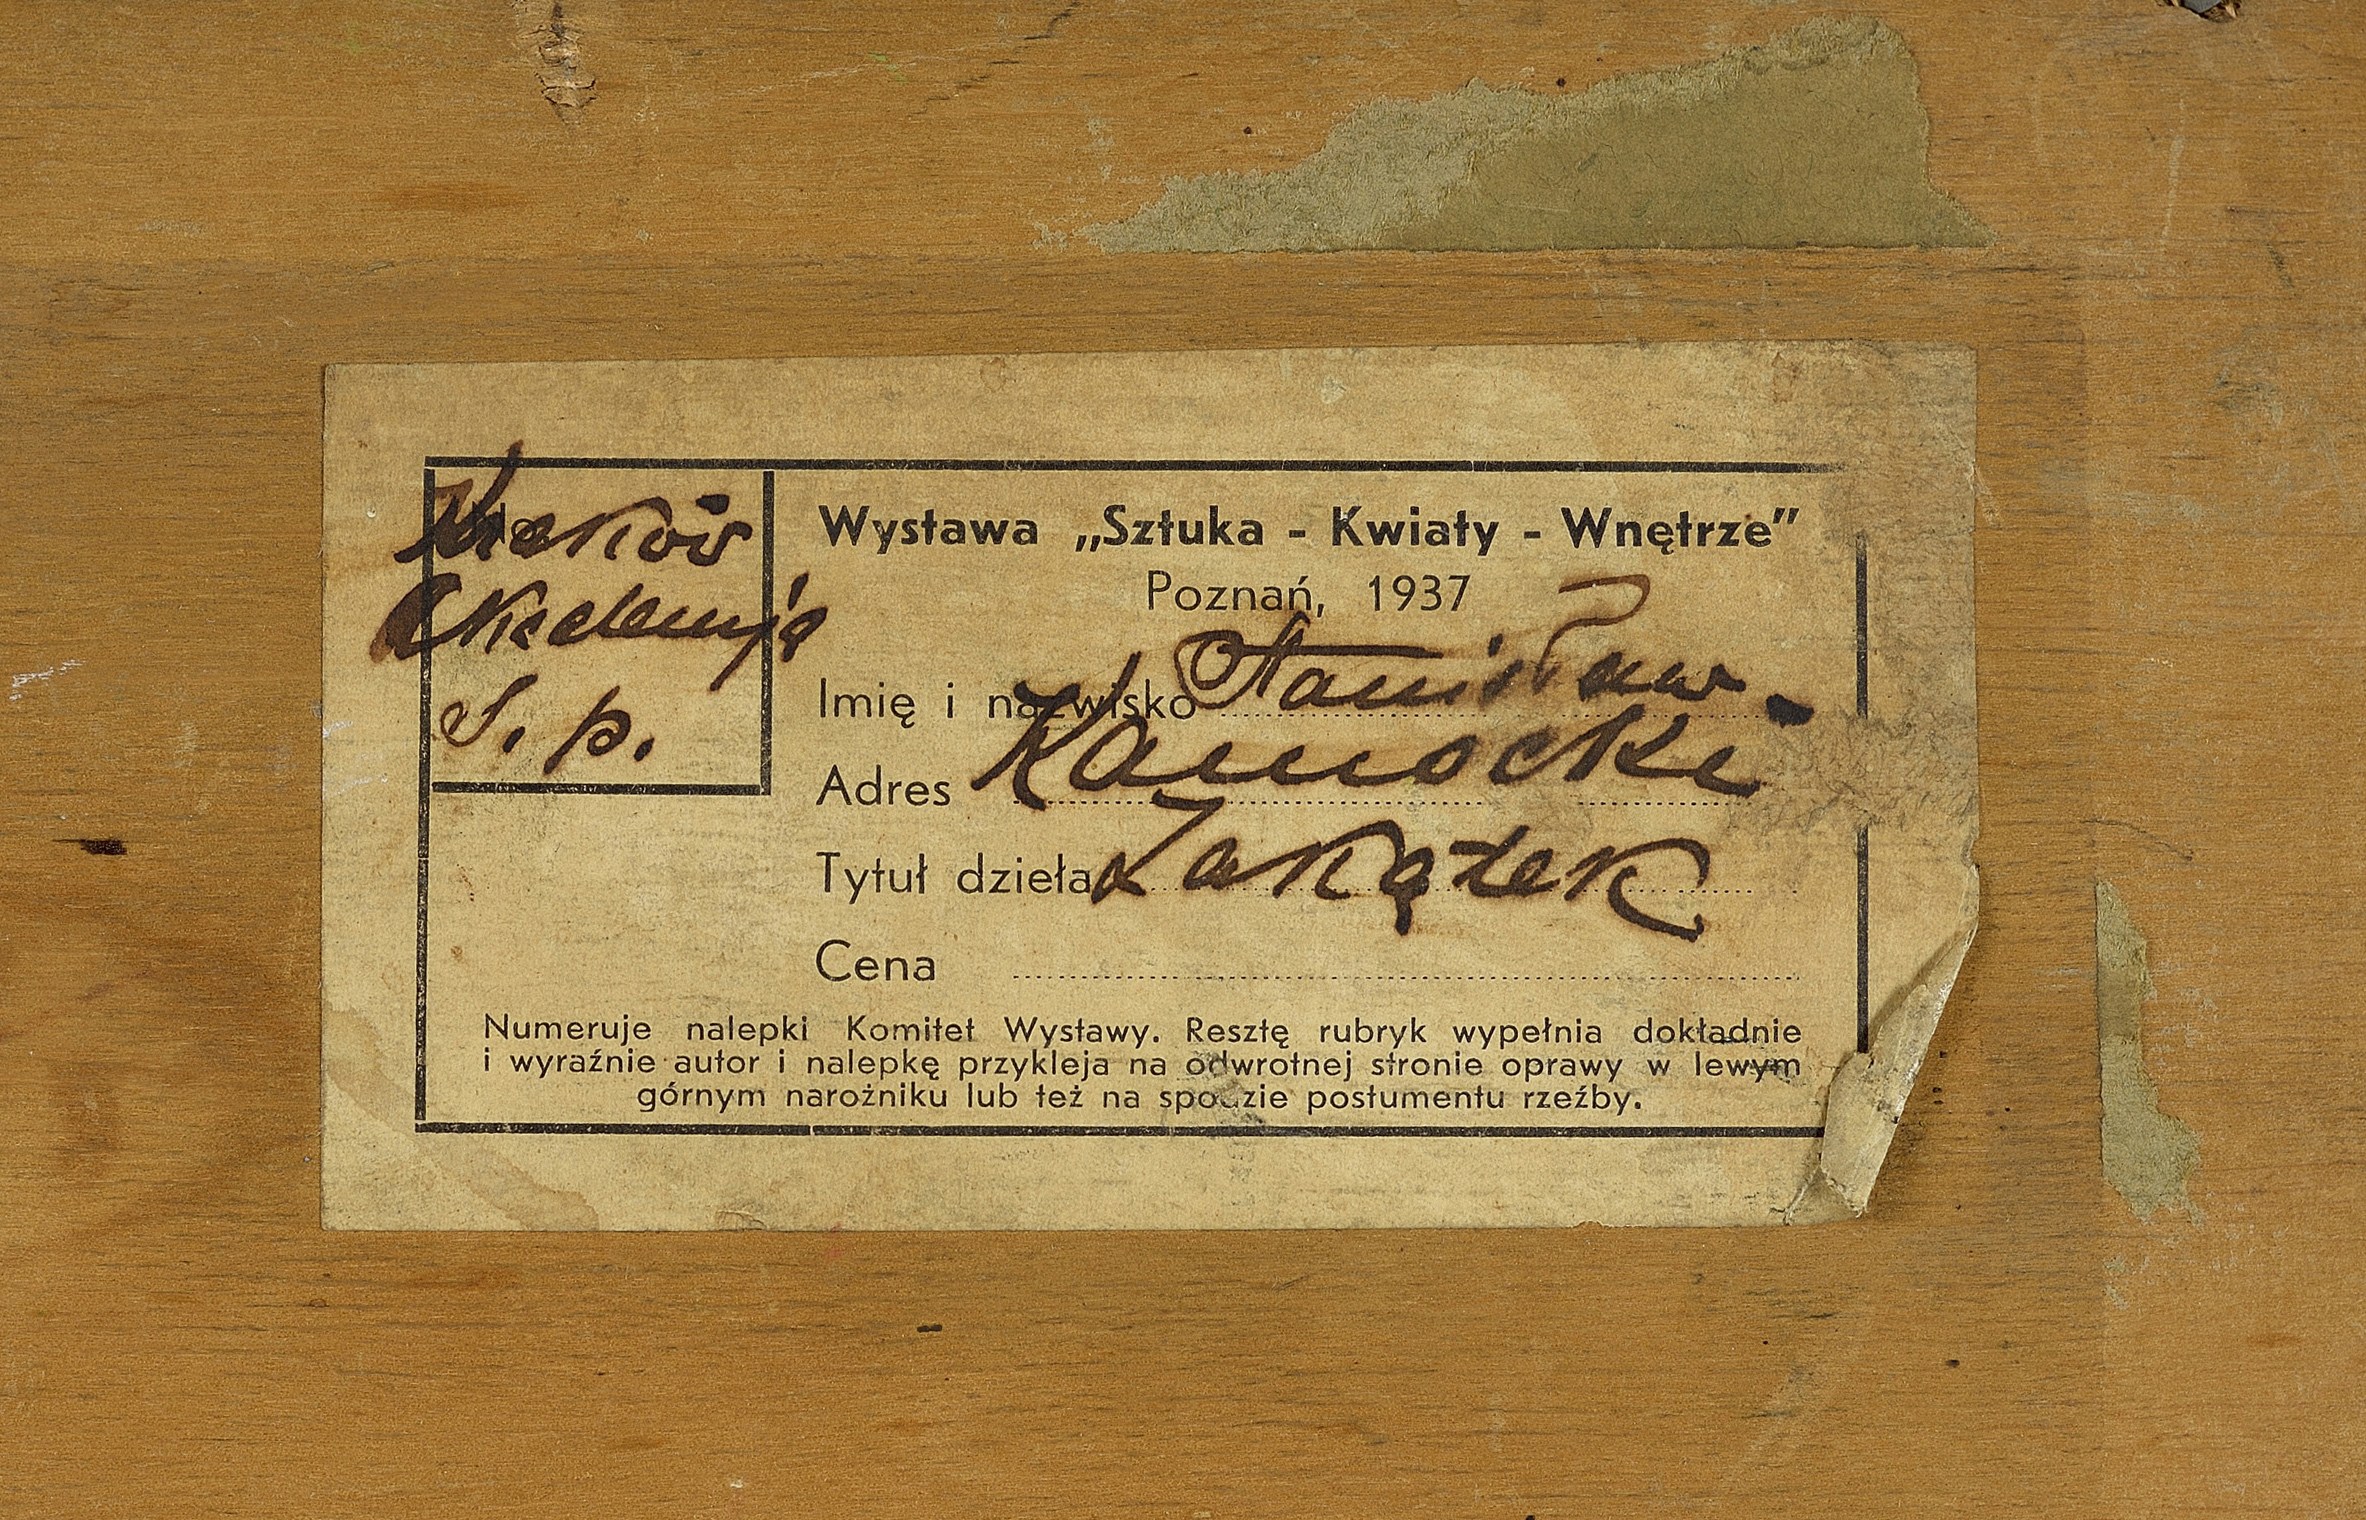 Kraków
Akademja
S. p.
Wystawa „Sztuka - Kwiaty - Wnętrze”
Poznań, 1937
Imię i nazwisko Stanisław
Adres Kamocki
Tytuł dzieła Zakątek
Cena
Numeruje nalepki Komitet Wystawy. Resztę rubryk wypełnia dokładnie
i wyraźnie autor i nalepkę przykleja na odwrotnej stronie oprawy w lewym
górnym narożniku lub też na spodzie postumentu rzeźby.